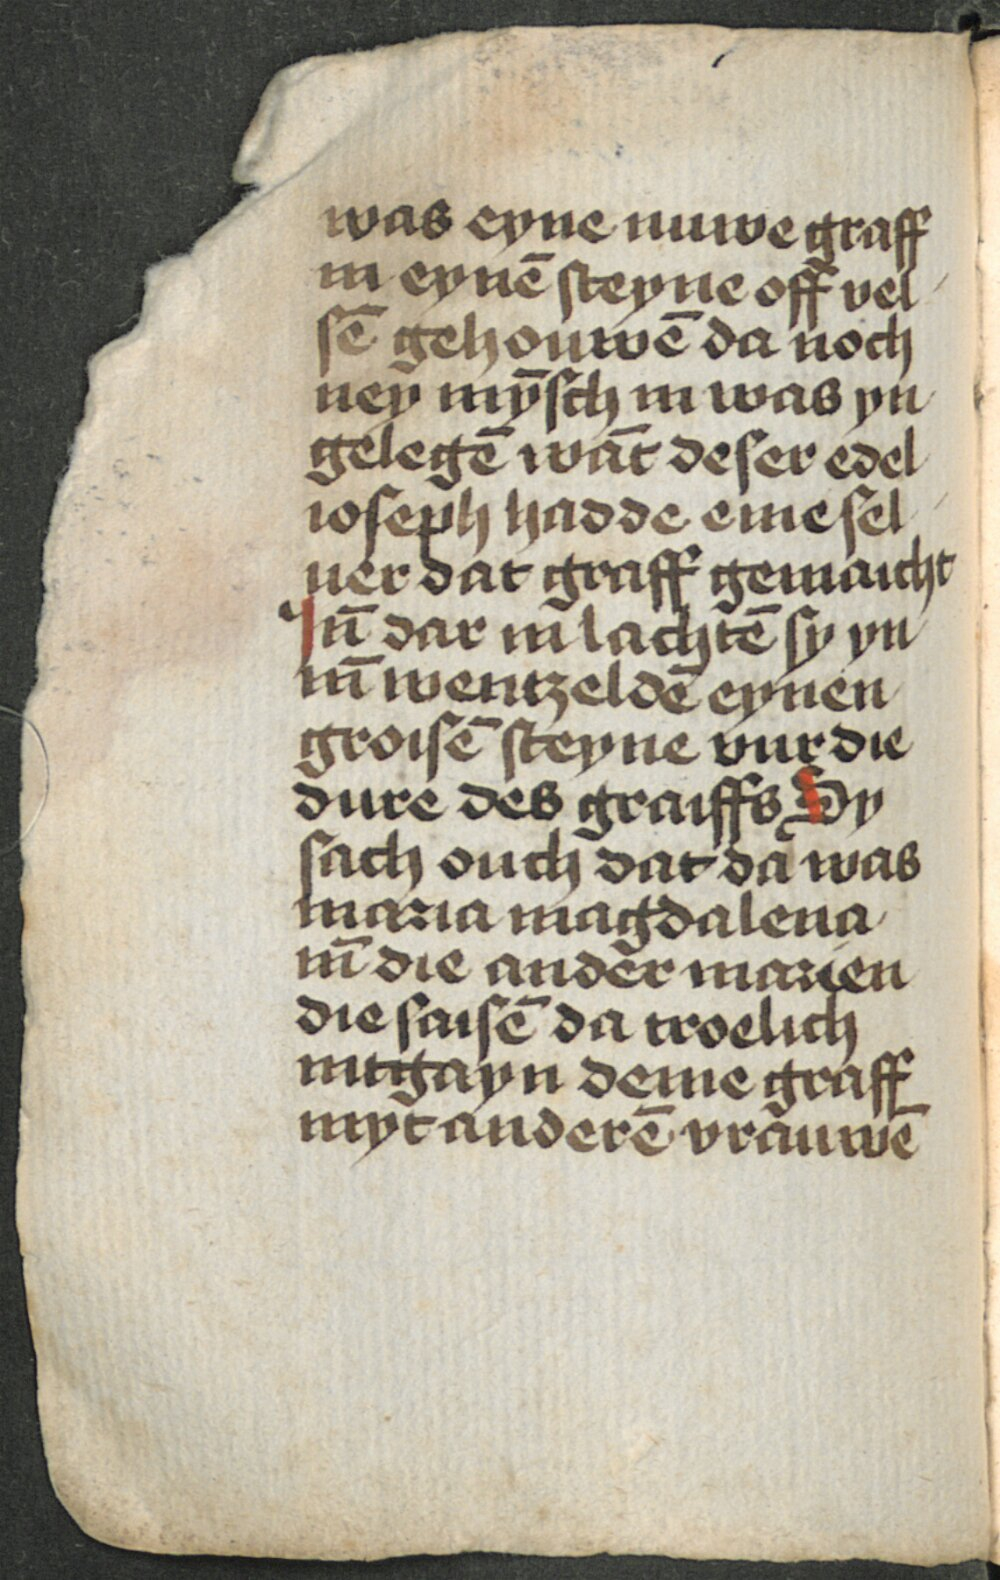 was eyne nuwe graff
in eynē steyne off vel
sē gehouwē da noch
ney mȳsch in was yn
gelegē wāt deser edel
ioseph hadde eme sel
uer dat graff gemaicht
Jn̄ dar in lachtē sy yn
in̄ wentzeldē eynen
groisē steyne vur die
dure des graiffs Sy
sach ouch dat da was
maria magdalena
in̄ die ander marien
die saisē da troelich
intgayn deme graff
myt anderē vrauwē